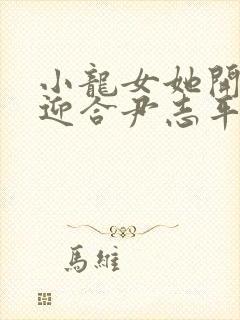 小龍女她開
迎合尹志平
馬維